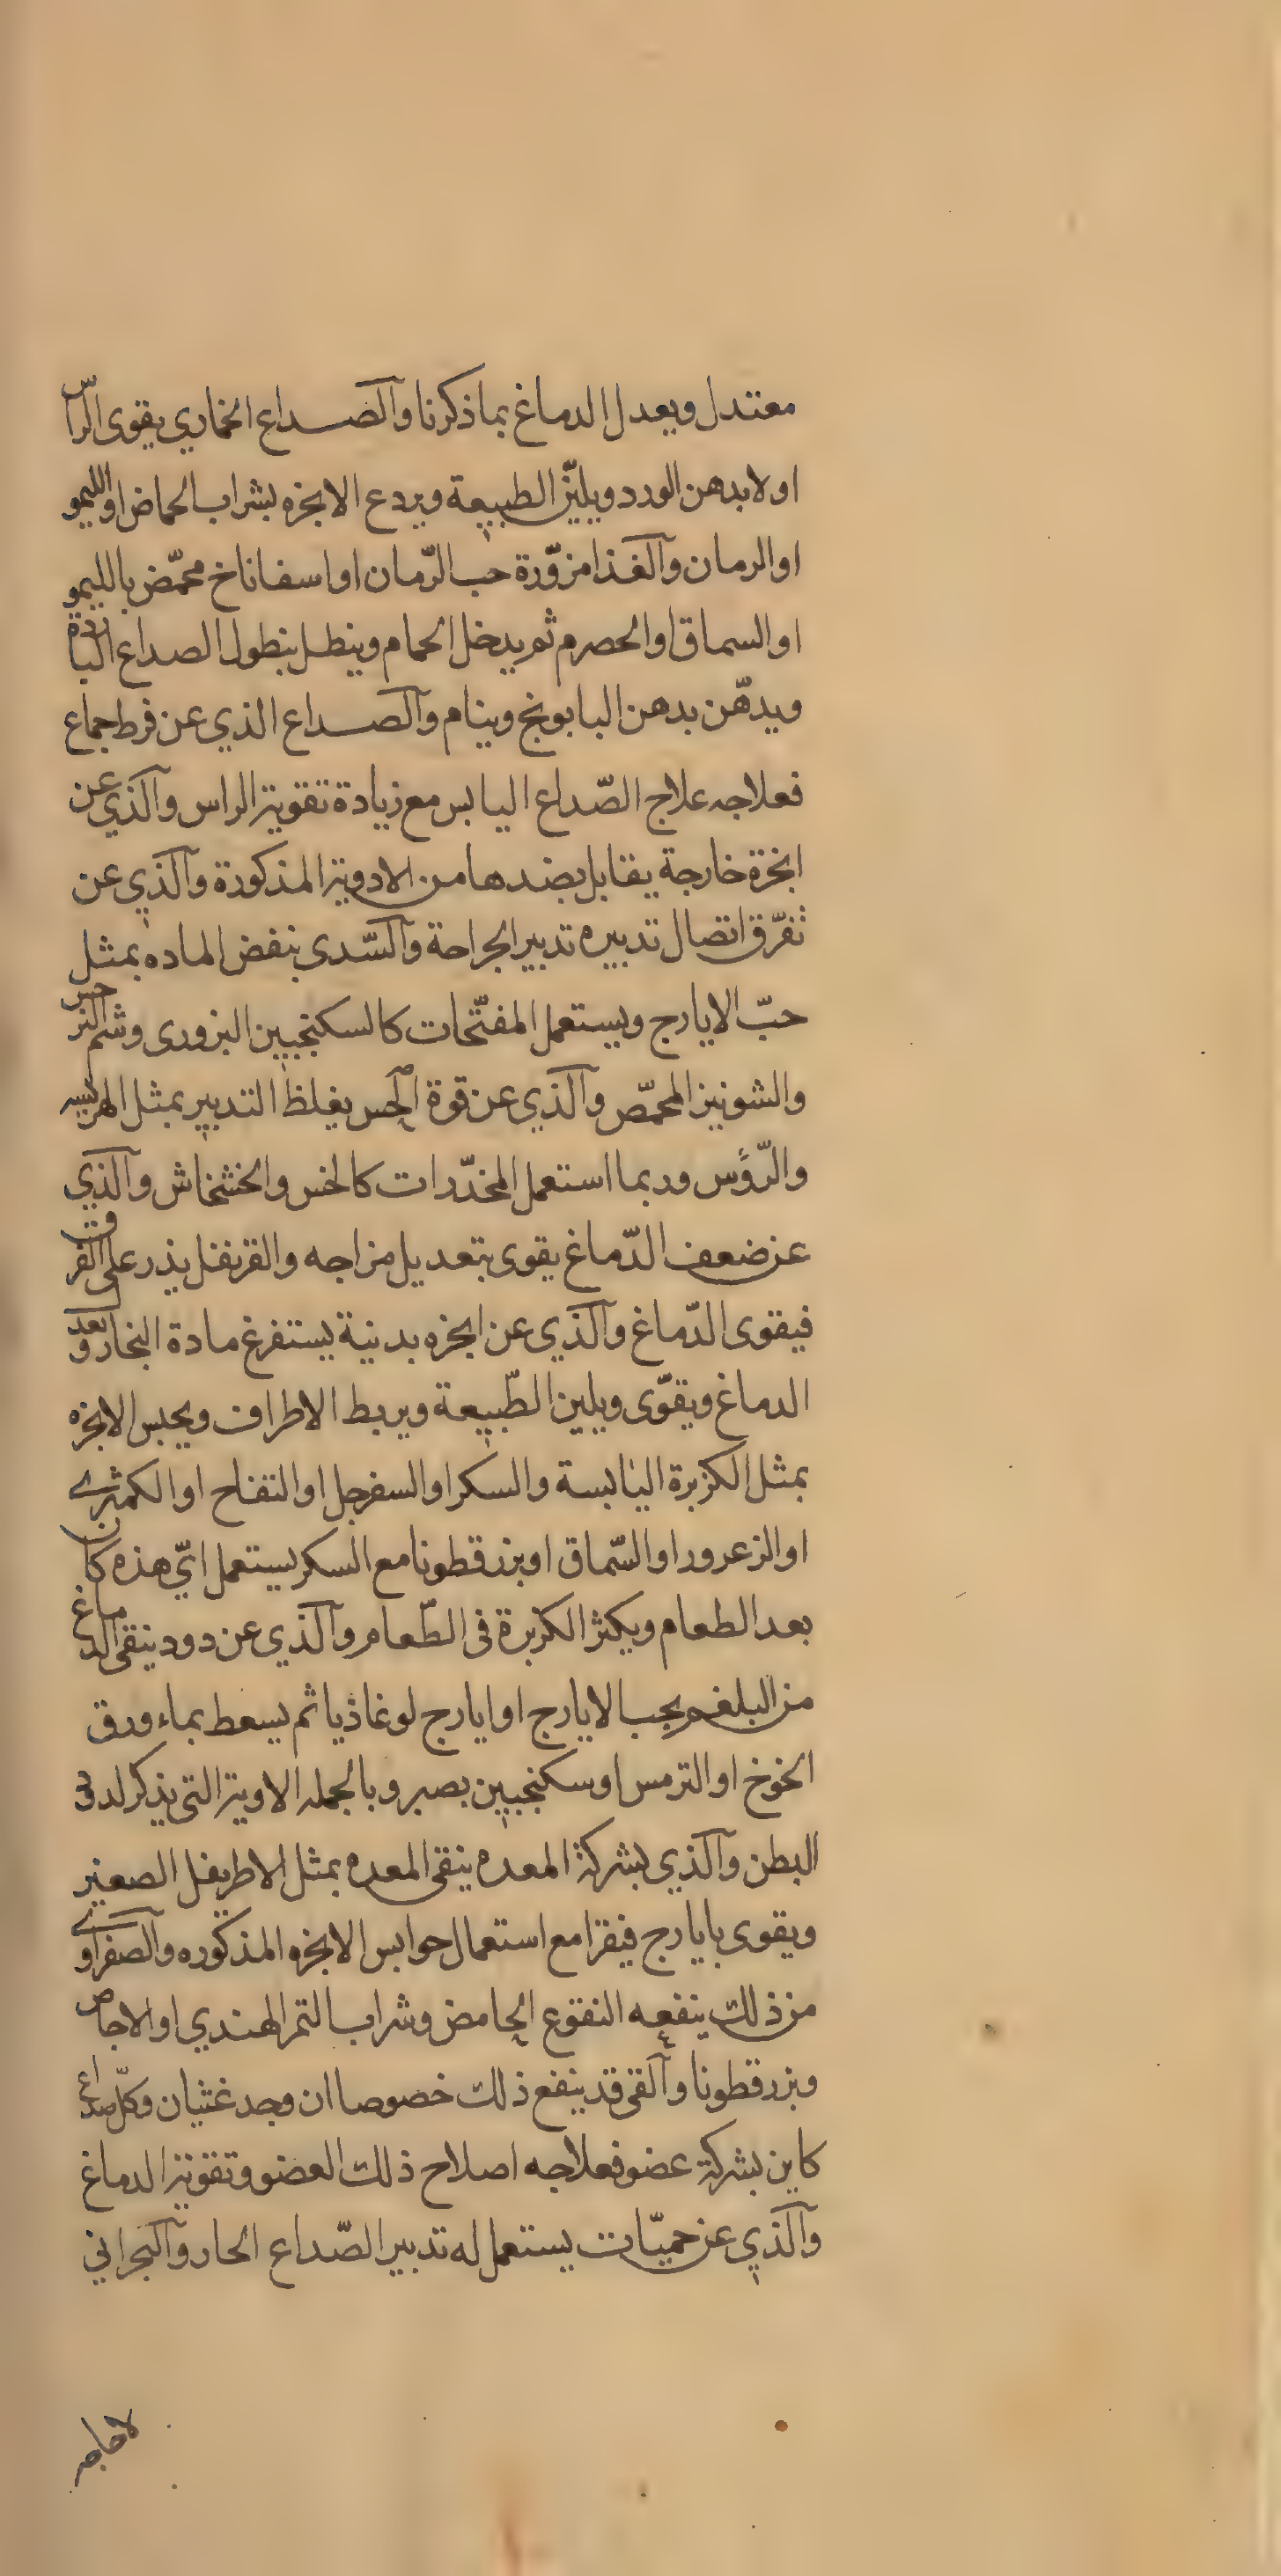 معتدل ويعدل الدماغ بما ذكرنا والصداع الخماري يقوى الرّاس
اولا بدهن الورد ويليّن الطبيعة ويردع الابخره بشراب الحماض او الليمو
او الرمان والغذا مزوّرة حب الرّمان او اسفاناخ محمّض بالليمو
او السماق او الحصرم ثم يدخل الحمام وينطل بنطول الصداع البارده
ويدهّن بدهن البابونج وينام والصداع الذي عن فرط جماع
فعلاجه علاج الصّداع اليابس مع زيادة تقوية الراس والذي عن
ابخرة خارجة يقابل بضدها من الادوية المذكورة والذي عن
تفرّق اتصال تدبيره تدبير الجراحة والسّدى ينفض الماده بمثل
حبّ الايارج ويستعمل المفتّحات كالسكنجبين البزورى وشم النرجس
والشونيز المحمّص والذي عن قوة الحس يغلظ التدبير بمثل الهريسه
والرّؤس وربما استعمل المخدّرات كالخس والخشخاش والذي
عن ضعف الدّماغ يقوى بتعديل مزاجه والقرنفل يذر على الفرق
فيقوى الدّماغ والذي عن ابخره بدنية يستفرغ مادة البخار وبعد
الدماغ ويقوّى ويلين الطّبيعة ويربط الاطراف ويحبس الابخره
بمثل الكزبرة اليابسة والسكر او السفرجل او التفاح او الكمثرے
او الزعرور او السّماق او بزرقطونا مع السكر يستعمل ايّ هذه كان
بعد الطعام ويكثر الكزبرة فى الطّعام والذي عن دود ينقى الدماغ
من البلغم بحب الايارج او ايارج لوغاذيا ثم يسعط بماء ورق
الخوخ او الترمس او سكنجبين بصبر وبالجمله الاوية التى يذكر لد3
البطن والذي بشركة المعده ينقى المعده بمثل الاطريفل الصغير
ويقوى بايارج فيقرا مع استعمال حوابس الابخره المذكوره والصفراوے
من ذلك ينفعه النقوع الحامض وشراب التمر الهندي او الاجاص
وبزرقطونا والقى قد ينفع ذلك خصوصا ان وجد غثيان وكلّ صداع
كاين بشركة عضو فعلاجه اصلاح ذلك العضو وتقوية الدماغ
والذي عن حميّات يستعمل له تدبير الصّداع الحار والبحراني
لا حاجه